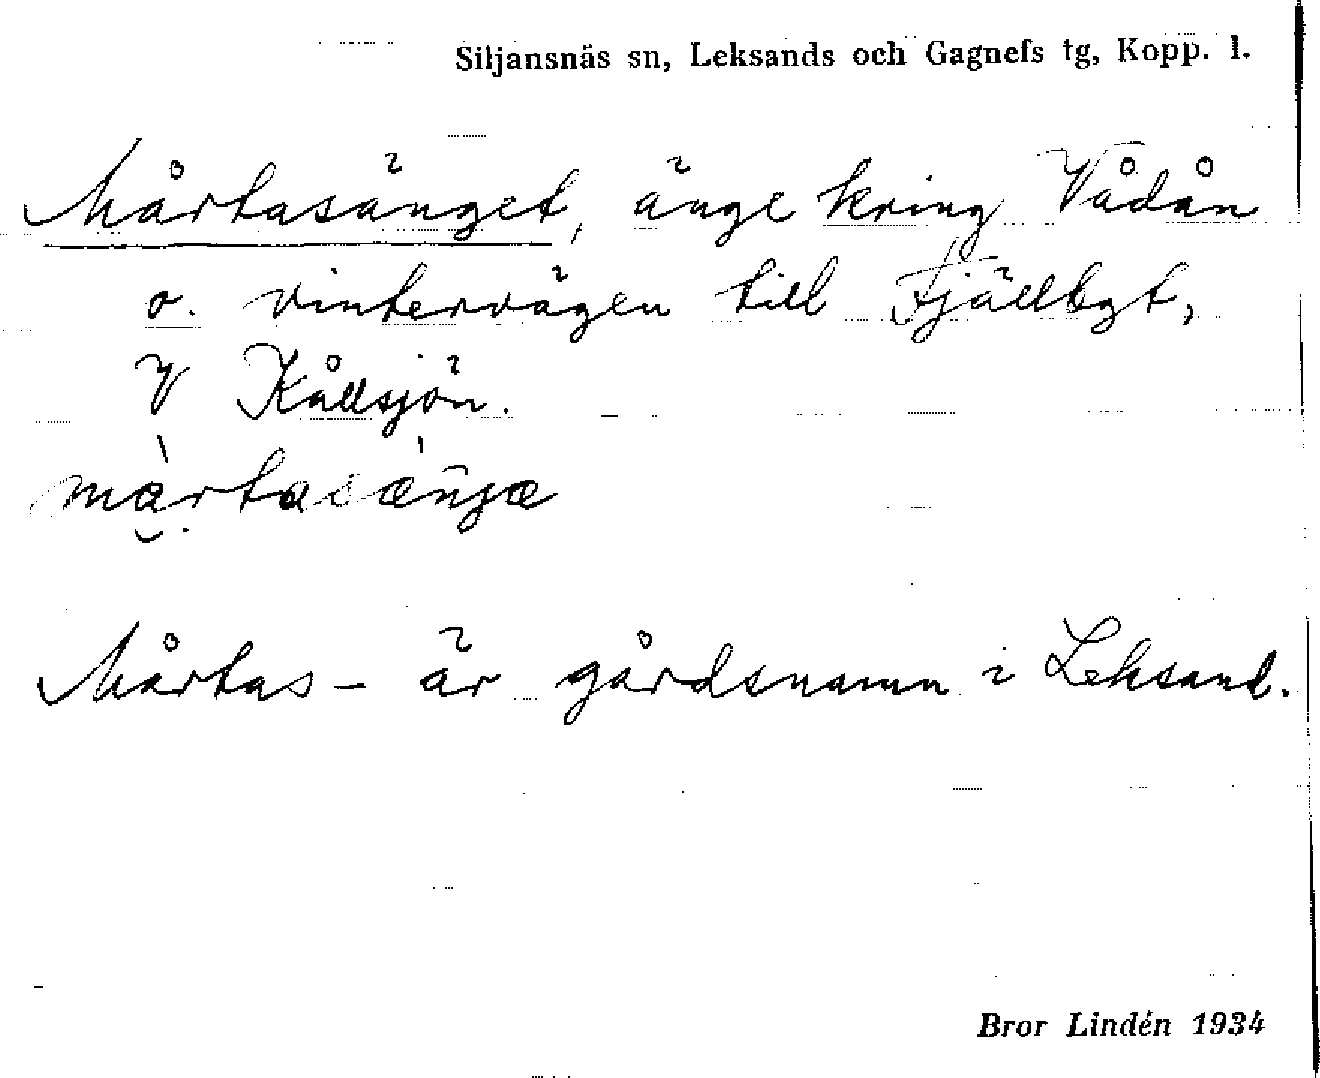 Siljansnäs sn, Leksands och Gagnefs tg, Kopp. l.
Mårtasänget, änge kring Vådån
o. vintervägen till Fjällbgt,
V Kållsjön.
màrtasæ̀ŋæ
Mårtas - är gårdsnamn i Leksand.
Bror Lindén 1934